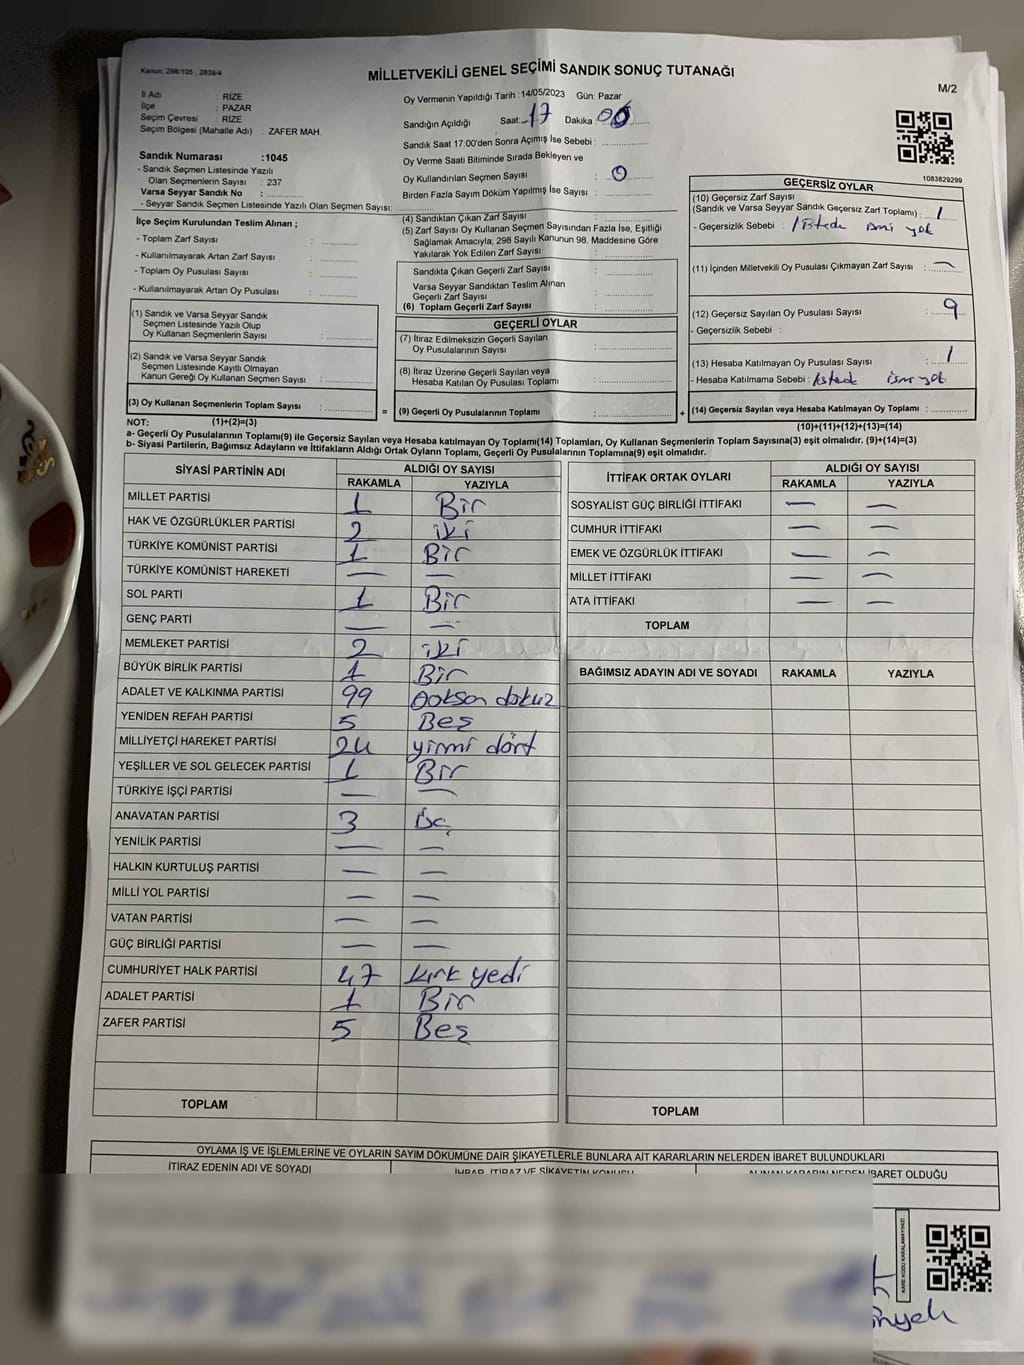 Kanun: 298/105 , 2839/4
MİLLETVEKİLİ GENEL SEÇİMİ SANDIK SONUÇ TUTANAĞI
M/2
İl Adı : RİZE
İlçe : PAZAR
Seçim Çevresi : RİZE
Seçim Bölgesi (Mahalle Adı) : ZAFER MAH.
Sandık Numarası :1045
- Sandık Seçmen Listesinde Yazılı
Olan Seçmenlerin Sayısı : 237
Varsa Seyyar Sandık No :
- Seyyar Sandık Seçmen Listesinde Yazılı Olan Seçmen Sayısı:
Oy Vermenin Yapıldığı Tarih :14/05/2023 Gün: Pazar
Sandığın Açıldığı Saat: 17 Dakika: 00
Sandık Saat 17:00'den Sonra Açımış İse Sebebi :
Oy Verme Saati Bitiminde Sırada Bekleyen ve
Oy Kullandırılan Seçmen Sayısı : 0
Birden Fazla Sayım Döküm Yapılmış İse Sayısı :
1083829299
İlçe Seçim Kurulundan Teslim Alınan ;
- Toplam Zarf Sayısı :
- Kullanılmayarak Artan Zarf Sayısı :
- Toplam Oy Pusulası Sayısı :
- Kullanılmayarak Artan Oy Pusulası :
(1) Sandık ve Varsa Seyyar Sandık
Seçmen Listesinde Yazılı Olup
Oy Kullanan Seçmenlerin Sayısı :
(2) Sandık ve Varsa Seyyar Sandık
Seçmen Listesinde Kayıtlı Olmayan
Kanun Gereği Oy Kullanan Seçmen Sayısı :
(3) Oy Kullanan Seçmenlerin Toplam Sayısı : =
(4) Sandıktan Çıkan Zarf Sayısı :
(5) Zarf Sayısı Oy Kullanan Seçmen Sayısından Fazla İse, Eşitliği
Sağlamak Amacıyla; 298 Sayılı Kanunun 98. Maddesine Göre
Yakılarak Yok Edilen Zarf Sayısı :
Sandıkta Çıkan Geçerli Zarf Sayısı :
Varsa Seyyar Sandıktan Teslim Alınan
Geçerli Zarf Sayısı :
(6) Toplam Geçerli Zarf Sayısı :
GEÇERLİ OYLAR
(7) İtiraz Edilmeksizin Geçerli Sayılan
Oy Pusulalarının Sayısı :
(8) İtiraz Üzerine Geçerli Sayılan veya
Hesaba Katılan Oy Pusulası Toplamı :
(9) Geçerli Oy Pusulalarının Toplamı : +
GEÇERSİZ OYLAR
(10) Geçersiz Zarf Sayısı
(Sandık ve Varsa Seyyar Sandık Geçersiz Zarf Toplamı) : 1
- Geçersizlik Sebebi : yok
(11) İçinden Milletvekili Oy Pusulası Çıkmayan Zarf Sayısı : —
(12) Geçersiz Sayılan Oy Pusulası Sayısı : 9
- Geçersizlik Sebebi :
(13) Hesaba Katılmayan Oy Pusulası Sayısı : 1
- Hesaba Katılmama Sebebi : listede ismi yok
(14) Geçersiz Sayılan veya Hesaba Katılmayan Oy Toplamı :
NOT: (1)+(2)=(3) (10)+(11)+(12)+(13)=(14)
a- Geçerli Oy Pusulalarının Toplamı(9) ile Geçersiz Sayılan veya Hesaba katılmayan Oy Toplamı(14) Toplamları, Oy Kullanan Seçmenlerin Toplam Sayısına(3) eşit olmalıdır. (9)+(14)=(3)
b- Siyasi Partilerin, Bağımsız Adayların ve İttifakların Aldığı Ortak Oyların Toplamı, Geçerli Oy Pusulalarının Toplamına(9) eşit olmalıdır.
SİYASİ PARTİNİN ADI ALDIĞI OY SAYISI
RAKAMLA YAZIYLA
MİLLET PARTİSİ 1 Bir
HAK VE ÖZGÜRLÜKLER PARTİSİ 2 iki
TÜRKİYE KOMÜNİST PARTİSİ 1 Bir
TÜRKİYE KOMÜNİST HAREKETİ — —
SOL PARTİ 1 Bir
GENÇ PARTİ — —
MEMLEKET PARTİSİ 2 iki
BÜYÜK BİRLİK PARTİSİ 1 Bir
ADALET VE KALKINMA PARTİSİ 99 Doksan dokuz
YENİDEN REFAH PARTİSİ 5 Beş
MİLLİYETÇİ HAREKET PARTİSİ 24 yirmi dört
YEŞİLLER VE SOL GELECEK PARTİSİ 1 Bir
TÜRKİYE İŞÇİ PARTİSİ — —
ANAVATAN PARTİSİ 3 Üç
YENİLİK PARTİSİ — —
HALKIN KURTULUŞ PARTİSİ — —
MİLLİ YOL PARTİSİ — —
VATAN PARTİSİ — —
GÜÇ BİRLİĞİ PARTİSİ — —
CUMHURİYET HALK PARTİSİ 47 kırk yedi
ADALET PARTİSİ 1 Bir
ZAFER PARTİSİ 5 Beş
TOPLAM
İTTİFAK ORTAK OYLARI ALDIĞI OY SAYISI
RAKAMLA YAZIYLA
SOSYALİST GÜÇ BİRLİĞİ İTTİFAKI — —
CUMHUR İTTİFAKI — —
EMEK VE ÖZGÜRLÜK İTTİFAKI — —
MİLLET İTTİFAKI — —
ATA İTTİFAKI — —
TOPLAM
BAĞIMSIZ ADAYIN ADI VE SOYADI RAKAMLA YAZIYLA
TOPLAM
OYLAMA İŞ VE İŞLEMLERİNE VE OYLARIN SAYIM DÖKÜMÜNE DAİR ŞİKAYETLERLE BUNLARA AİT KARARLARIN NELERDEN İBARET BULUNDUKLARI
İTİRAZ EDENİN ADI VE SOYADI İHBAR, İTİRAZ VE ŞİKAYETİN KONUSU ALINAN KARARIN NEDEN İBARET OLDUĞU
KARE KODU KARALAMAYINIZ!